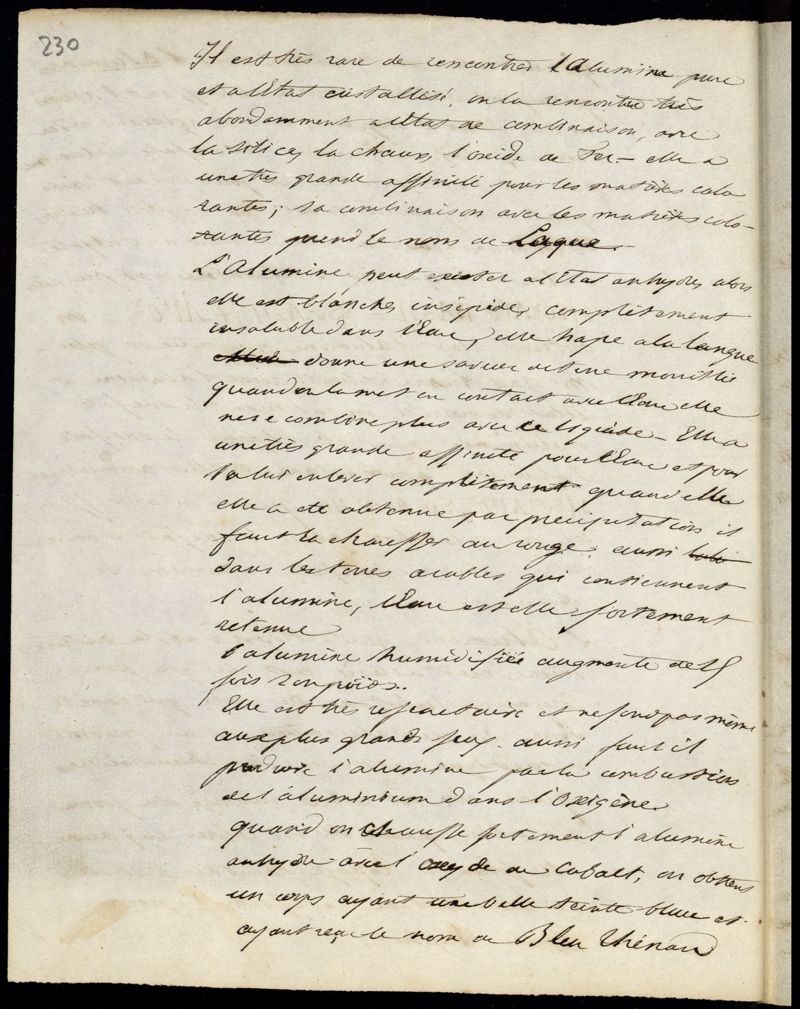 230
Il est très rare de rencontrer l'Alumine pure
et à l'Etat cristallisé, on la rencontre très
abondamment a l'Etat de combinaison, avec
la silice, la chaux, l'oxide de Fer — elle a
une très grande affinité pour les matières colo
rantes; sa combinaison avec les matières colo-
rantes prend le nom de Laque.
L'Alumine peut exister a l'Etat anhydre alors
elle est blanche, insipide, complètement
insoluble dans l'Eau, elle hape a la langue
donne une saveur de terre mouillée
quand on la met en contact avec l'Eau elle
ne se combine plus avec ce liquide — Elle a
une très grande affinité pour l'Eau et pour
la lui enlever complètement quand elle
elle a été obtenue par précipitation il
faut la chauffer au rouge. aussi
dans les terres arables qui contiennent
l'alumine, l'Eau est elle fortement
retenue
l'alumine humidifiée augmente de 15
fois son poids.
Elle est très refractaire et ne fond pas même
aux plus grands feux. aussi faut il
produire l'alumine par la combustion
de l'aluminium dans l'Oxigène
quand on chauffe fortement l'alumine
anhydre avec l'oxyde de Cobalt, on obtient
un corps ayant une belle teinte bleue et
ayant reçu le nom de Bleu Thénard